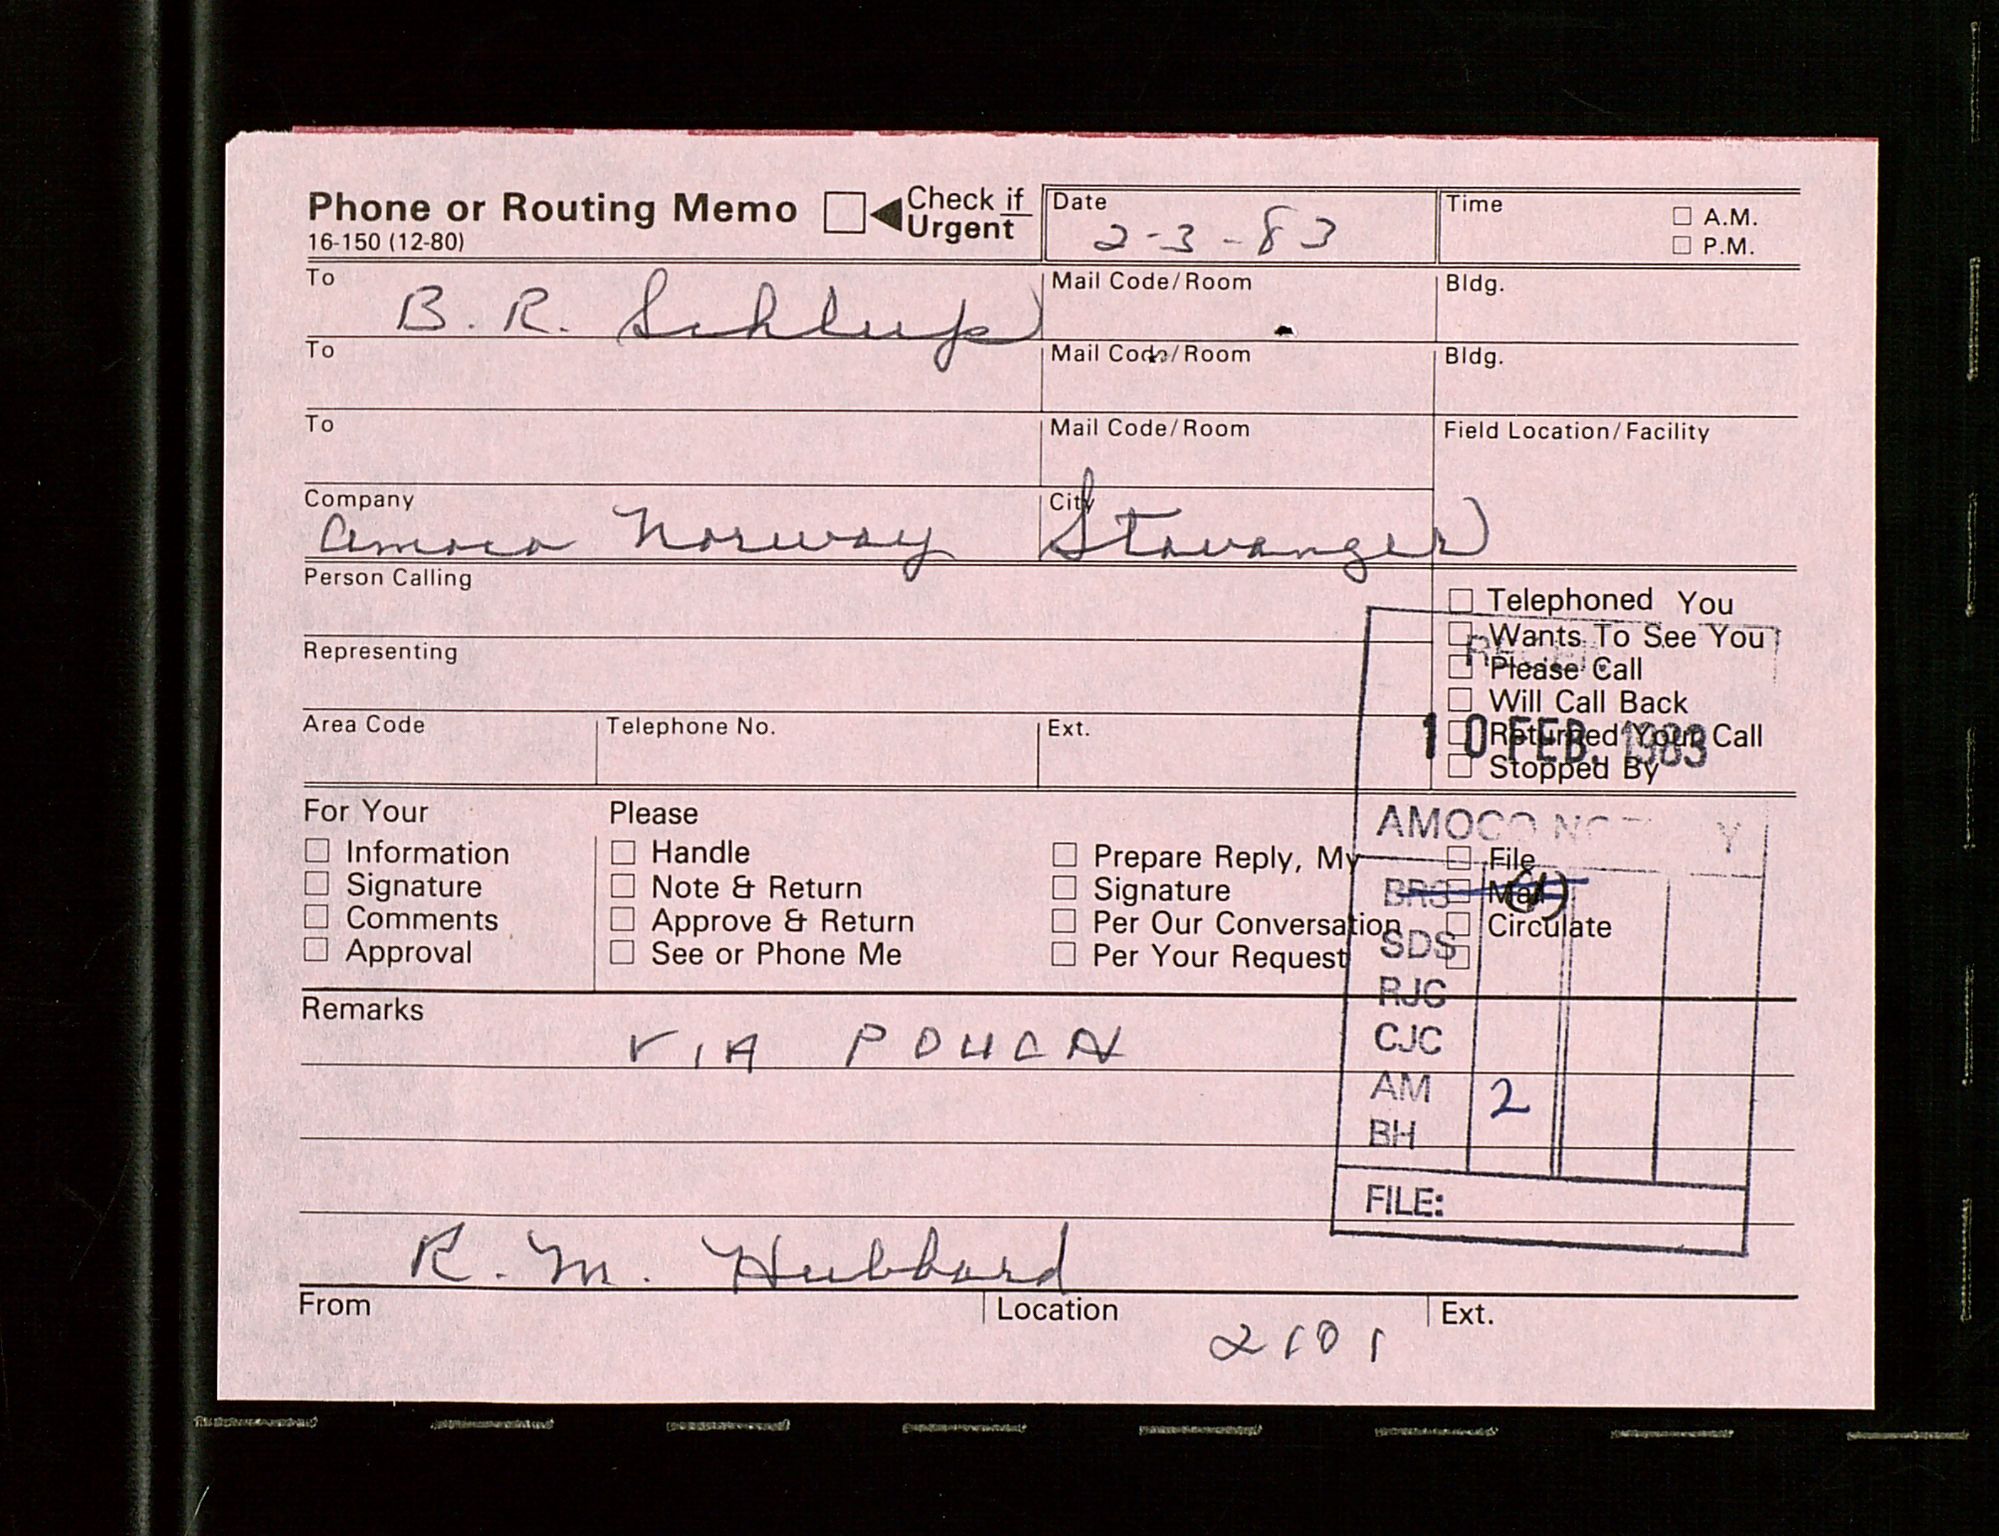 Phone or Routing Memo ☐ Check if Urgent
16-150 (12-80)
Date 2-3-83
Time ☐ A.M.
☐ P.M.
To B. R. Schlup
Mail Code/Room
Bldg.
To
Mail Code/Room
Bldg.
To
Mail Code/Room
Field Location/Facility
Company Amoco Norway
City Stavanger
Person Calling
Representing
Area Code
Telephone No.
Ext.
☐ Telephoned You
☐ Wants To See You
☐ Please Call
☐ Will Call Back
☐ Returned Your Call
☐ Stopped By
10 FEB. 1983
For Your
☐ Information
☐ Signature
☐ Comments
☐ Approval
Please
☐ Handle
☐ Note & Return
☐ Approve & Return
☐ See or Phone Me
☐ Prepare Reply, My
☐ Signature
☐ Per Our Conversation
☐ Per Your Request
☐ File
☐ Mail
☐ Circulate
☐
AMOCO
BRS (1)
SDS
RJC
CJC
AM 2
BH
FILE:
Remarks
VIA POUCH
R. M. Hubbard
From
Location 2101
Ext.